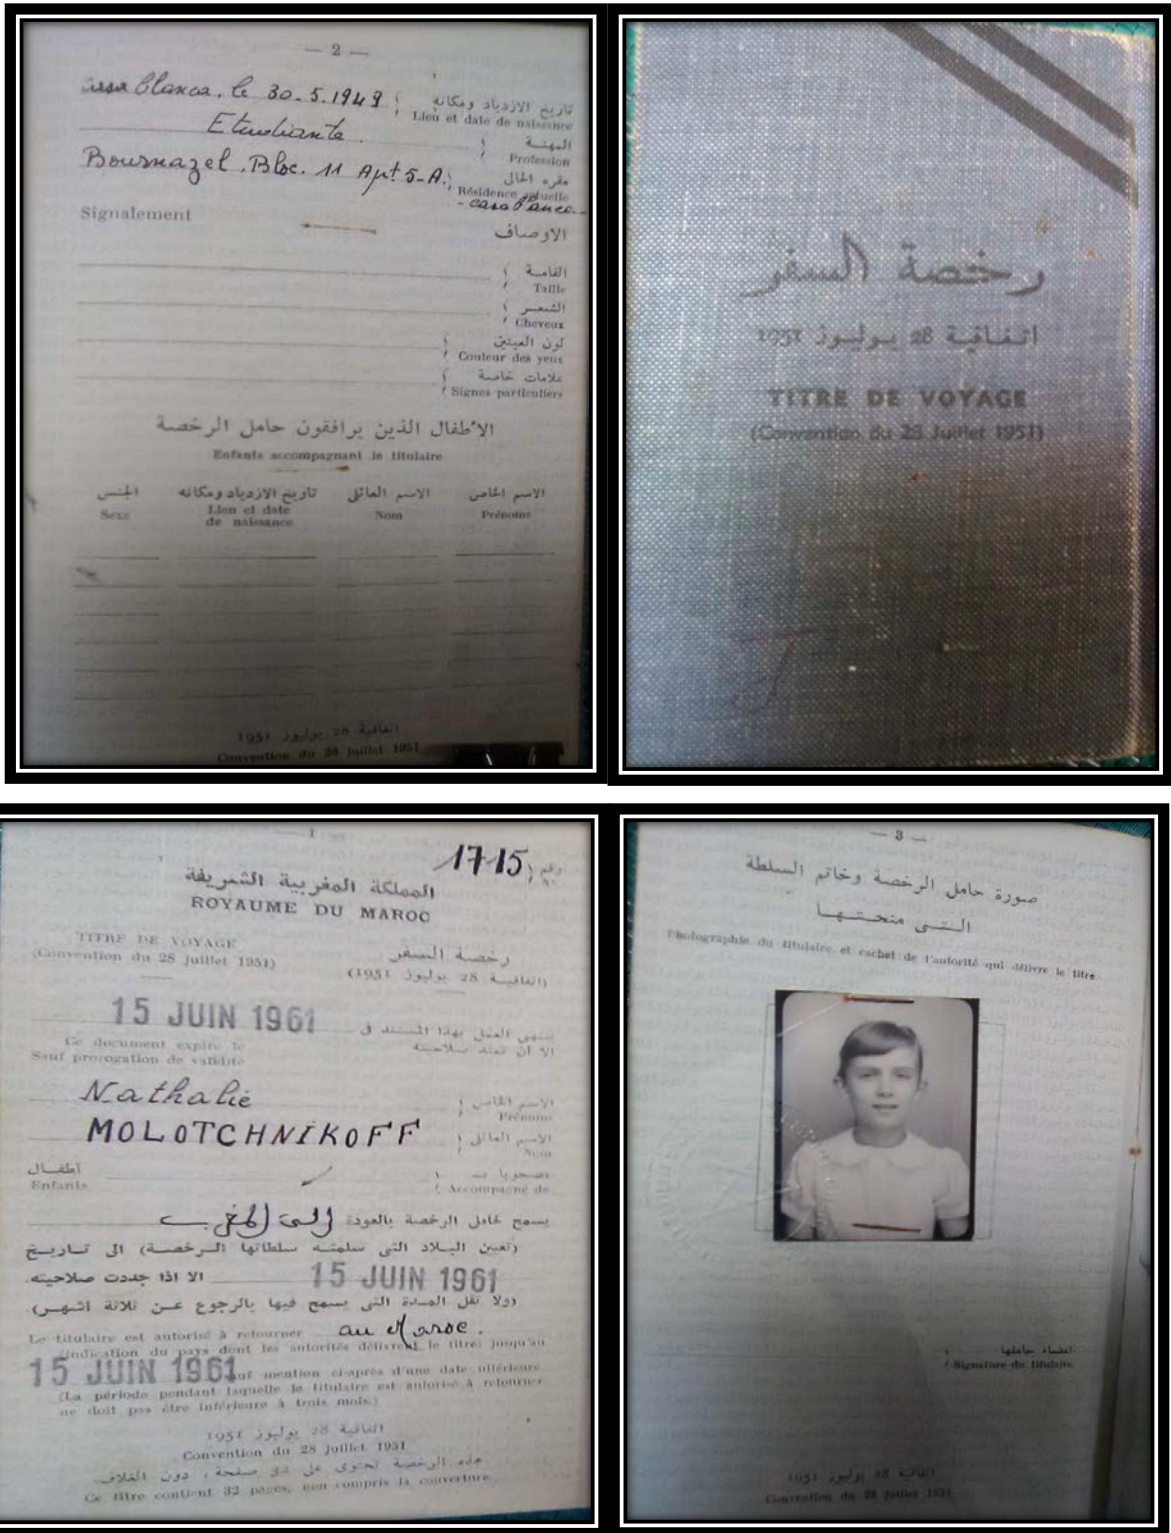 — 2 —
Casablanca. le 30-5.1949 تاريخ الازدياد ومكانه
Lieu et date de naissance
Etudiante المهنة
Profession
Bournazel. Bloc. 11 Apt 5-A. مقره الحال
Résidence actuelle
- casablanca -
Signalement الاوصاف
القامة
Taille
الشعر
Cheveux
لون العينين
Couleur des yeux
علامات خاصة
Signes particuliers
الأطفال الذين يرافقون حامل الرخصة
Enfants accompagnant le titulaire
الجنس تاريخ الازدياد ومكانه الاسم العائلى الاسم الخاص
Sexe Lieu et date de naissance Nom Prénoms
اتفاقية 28 يوليوز 1951
Convention du 28 Juillet 1951
رخصة السفر
اتفاقية 28 يوليوز 1951
TITRE DE VOYAGE
(Convention du 28 Juillet 1951)
1
1715 رقم
المملكة المغربية الشريفة
ROYAUME DU MAROC
TITRE DE VOYAGE رخصة السفر
(Convention du 28 juillet 1951) (اتفاقية 28 يوليوز 1951)
15 JUIN 1961 ينتهى العمل بهذا المستند فى
Ce document expire le الا ان تمتد صلاحيته
Sauf prorogation de validité
Nathalie الاسم الخاص
Prénoms
MOLOTCHNIKOFF الاسم العائلى
Nom
أطفال مصحوبا بـ
Enfants Accompagné de
يسمح لحامل الرخصة بالعودة إلى المغرب
(تعيين البلاد التى سلمته سلطاتها الرخصة) الى تاريخ
15 JUIN 1961 الا اذا جددت صلاحيته
(ولا تقل المدة التى يسمح فيها بالرجوع عن ثلاثة اشهر).
Le titulaire est autorisé à retourner au Maroc.
(indication du pays dont les autorités délivrent le titre) jusqu'au
15 JUIN 1961 sauf mention ci-après d'une date ultérieure
(La période pendant laquelle le titulaire est autorisé à retourner
ne doit pas être inférieure à trois mois.)
اتفاقية 28 يوليوز 1951
Convention du 28 Juillet 1951
هذه الرخصة تحتوى على صفحة، دون الغلاف.
Ce titre contient 32 pages, non compris la couverture.
— 3 —
صورة حامل الرخصة وخاتم السلطة
التى منحتها
Photographie du titulaire et cachet de l'autorité qui délivre le titre
امضاء حاملها
Signature du titulaire
اتفاقية 28 يوليوز 1951
Convention du 28 Juillet 1951